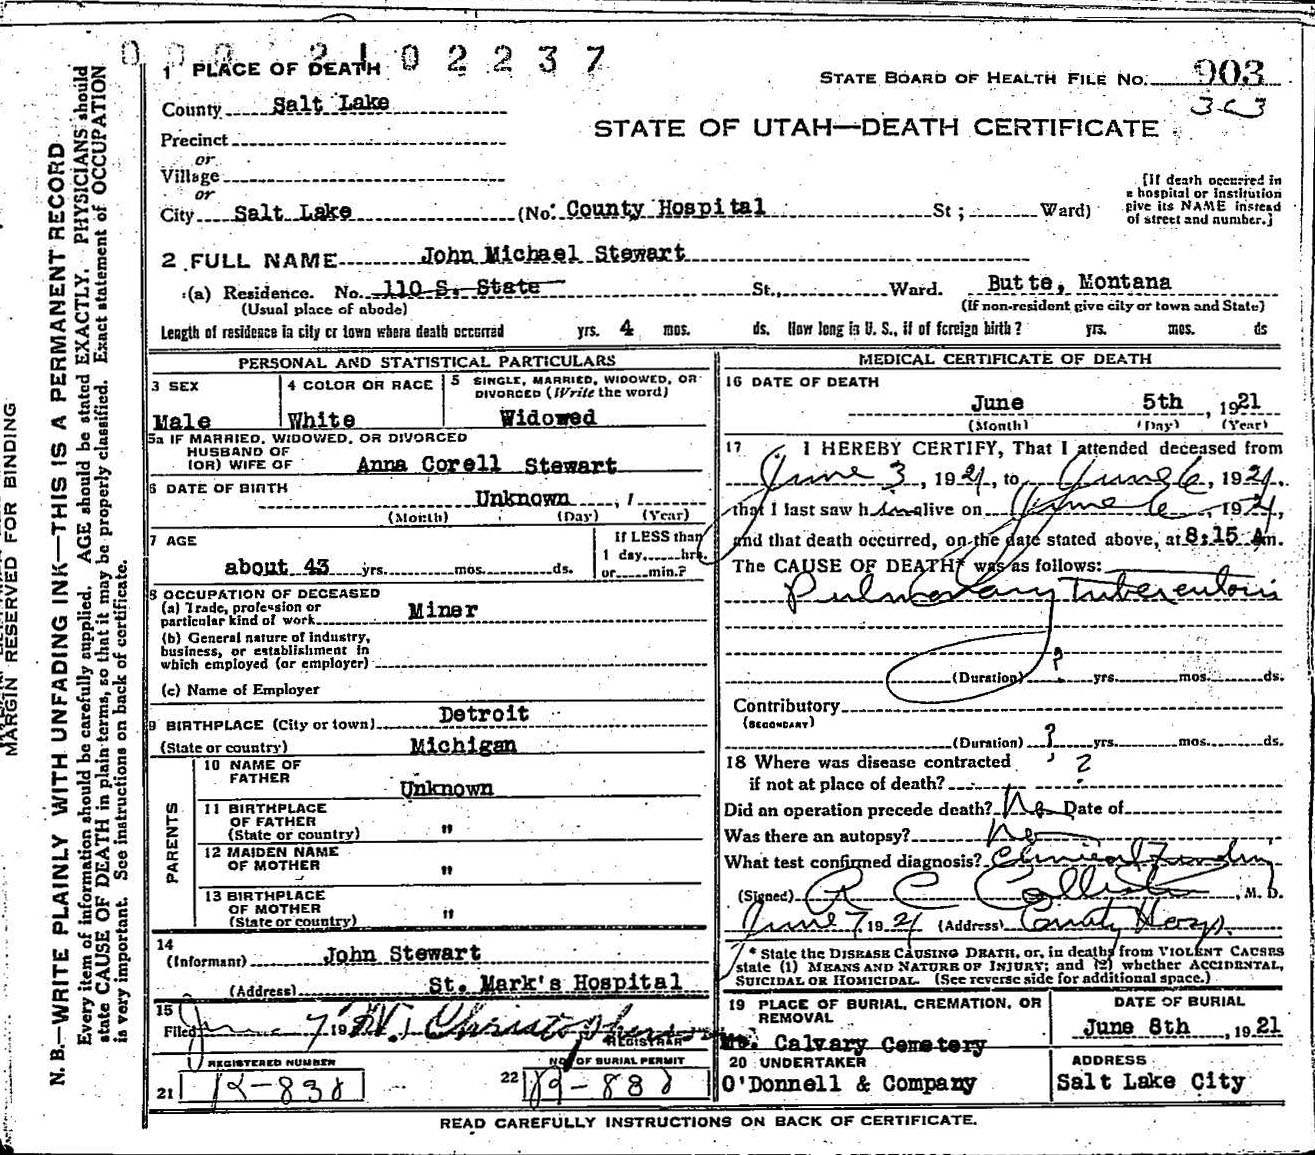 0 0 0 2 1 0 2 2 3 7
1 PLACE OF DEATH
STATE BOARD OF HEALTH FILE No. 903
303
County Salt Lake
STATE OF UTAH—DEATH CERTIFICATE
Precinct
or
Village
or
City Salt Lake (No. County Hospital St; Ward)
[If death occurred in
a hospital or institution
give its NAME instead
of street and number.]
2 FULL NAME John Michael Stewart
(a) Residence. No. 110 S. State St., Ward. Butte, Montana
(Usual place of abode) (If non-resident give city or town and State)
Length of residence in city or town where death occurred yrs. 4 mos. ds. How long in U. S., if of foreign birth? yrs. mos. ds
PERSONAL AND STATISTICAL PARTICULARS
3 SEX
Male
4 COLOR OR RACE
White
5 SINGLE, MARRIED, WIDOWED, OR
DIVORCED (Write the word)
Widowed
5a IF MARRIED, WIDOWED, OR DIVORCED
HUSBAND OF
(OR) WIFE OF Anna Corell Stewart
6 DATE OF BIRTH
Unknown
(Month) (Day) (Year)
7 AGE
about 43 yrs. mos. ds.
If LESS than
1 day, hrs.
or min.?
8 OCCUPATION OF DECEASED
(a) Trade, profession or
particular kind of work Miner
(b) General nature of industry,
business, or establishment in
which employed (or employer)
(c) Name of Employer
9 BIRTHPLACE (City or town) Detroit
(State or country) Michigan
PARENTS
10 NAME OF
FATHER
Unknown
11 BIRTHPLACE
OF FATHER
(State or country) "
12 MAIDEN NAME
OF MOTHER "
13 BIRTHPLACE
OF MOTHER
(State or country) "
14
(Informant) John Stewart
(Address) St. Mark's Hospital
15
Filed June 7 19 W. Christopherson
REGISTRAR
REGISTERED NUMBER
21 12-838
NO. OF BURIAL PERMIT
22 12-888
MEDICAL CERTIFICATE OF DEATH
16 DATE OF DEATH
June 5th, 1921
(Month) (Day) (Year)
17 I HEREBY CERTIFY, That I attended deceased from
June 3, 1921, to June 6, 1921,
that I last saw h im alive on June 6, 1921,
and that death occurred, on the date stated above, at 8:15 A m.
The CAUSE OF DEATH* was as follows:
Pulmonary Tuberculosis
(Duration) ? yrs. mos. ds.
Contributory
(SECONDARY)
(Duration) ? yrs. mos. ds.
18 Where was disease contracted
if not at place of death? ?
Did an operation precede death? No Date of
Was there an autopsy? No
What test confirmed diagnosis? Clinical Finding
(Signed) R C , M. D.
June 7, 1921 (Address) County Hosp.
* State the DISEASE CAUSING DEATH, or, in deaths from VIOLENT CAUSES
state (1) MEANS AND NATURE OF INJURY; and (2) whether ACCIDENTAL,
SUICIDAL OR HOMICIDAL. (See reverse side for additional space.)
19 PLACE OF BURIAL, CREMATION, OR
REMOVAL
Mt. Calvary Cemetery
DATE OF BURIAL
June 8th, 1921
20 UNDERTAKER
O'Donnell & Company
ADDRESS
Salt Lake City
READ CAREFULLY INSTRUCTIONS ON BACK OF CERTIFICATE.
MARGIN RESERVED FOR BINDING
N. B.—WRITE PLAINLY WITH UNFADING INK—THIS IS A PERMANENT RECORD
Every item of information should be carefully supplied. AGE should be stated EXACTLY. PHYSICIANS should
state CAUSE OF DEATH in plain terms, so that it may be properly classified. Exact statement of OCCUPATION
is very important. See instructions on back of certificate.